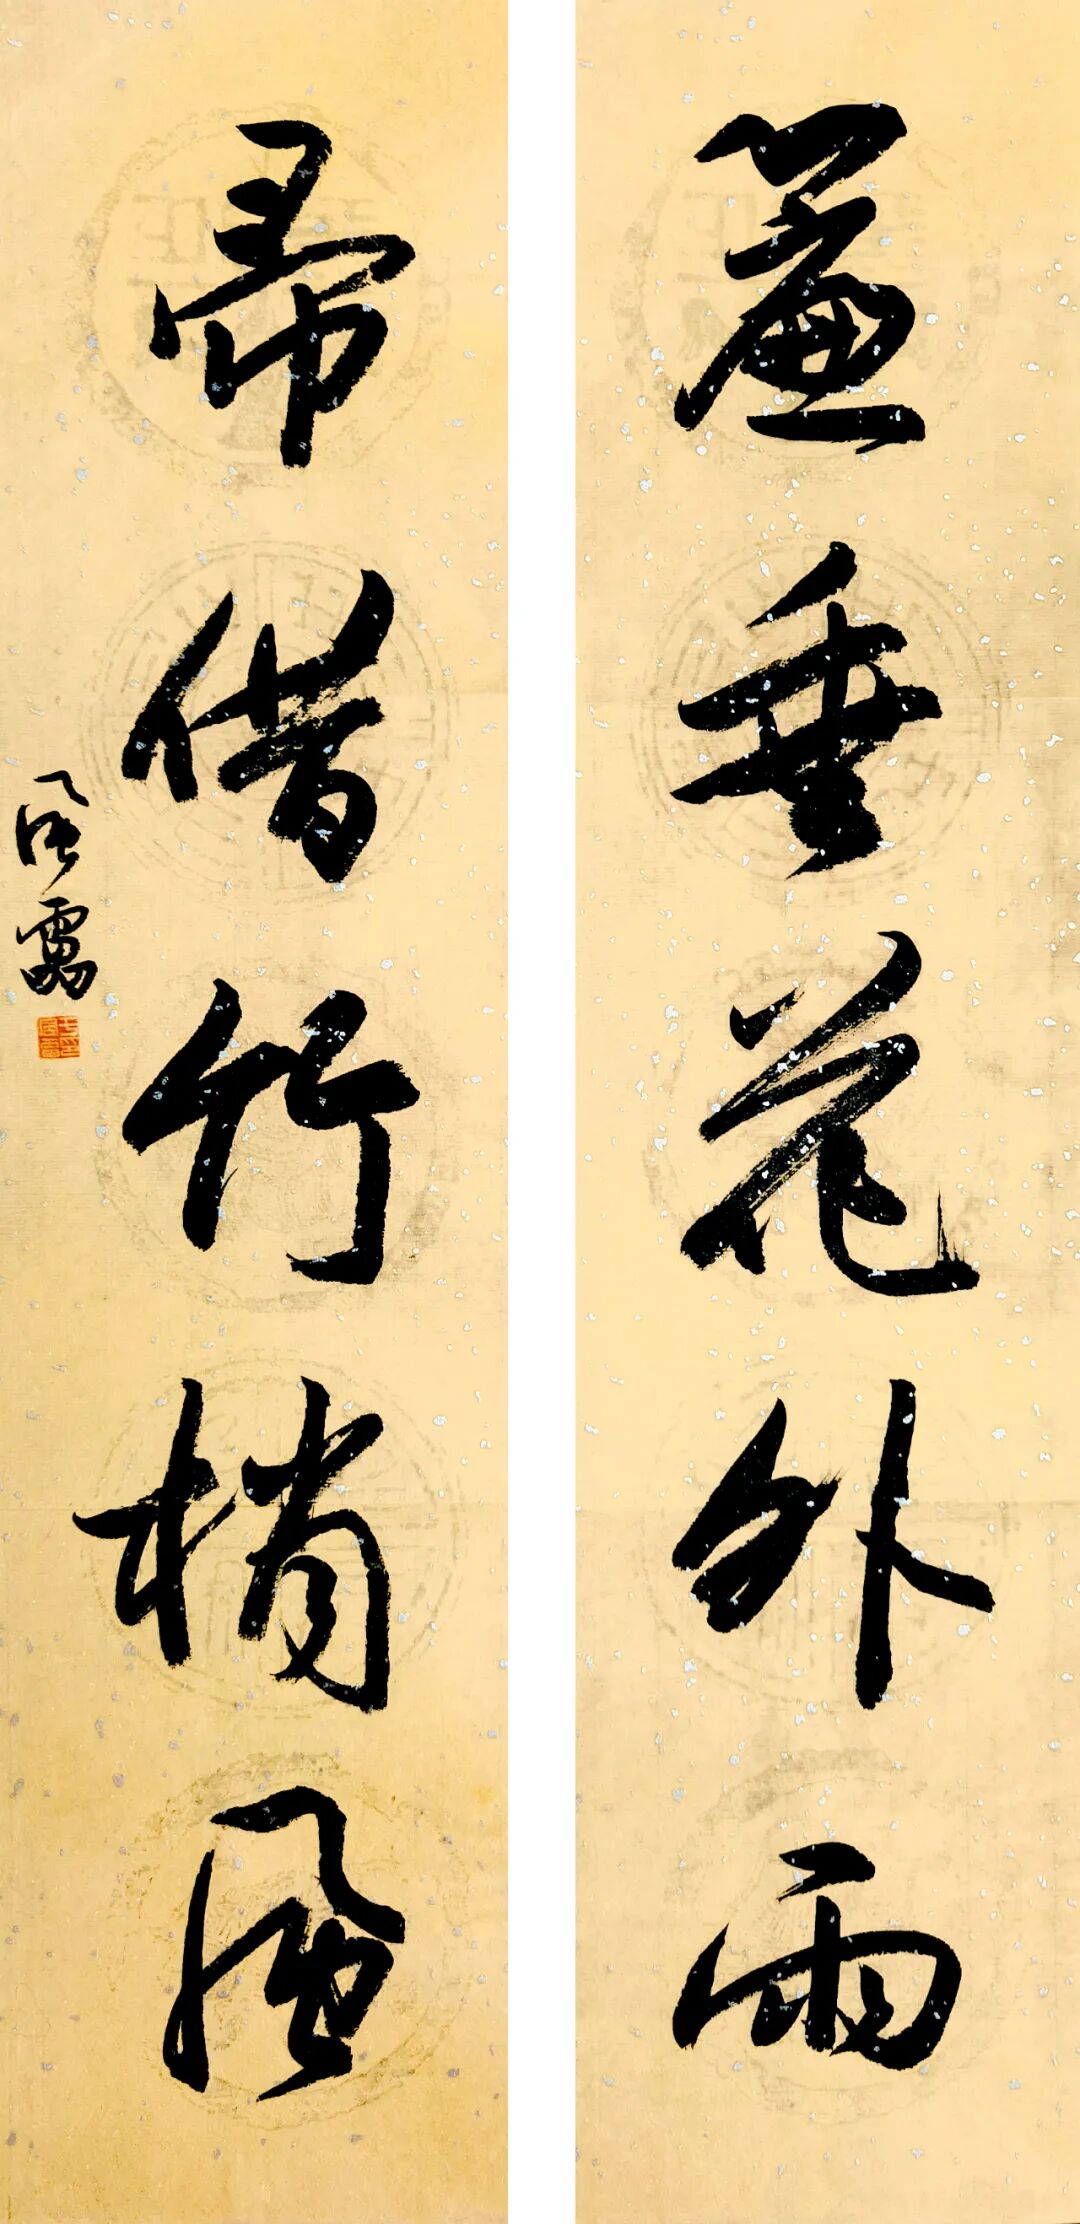 簾垂花外雨
帚借竹梢風
風雷